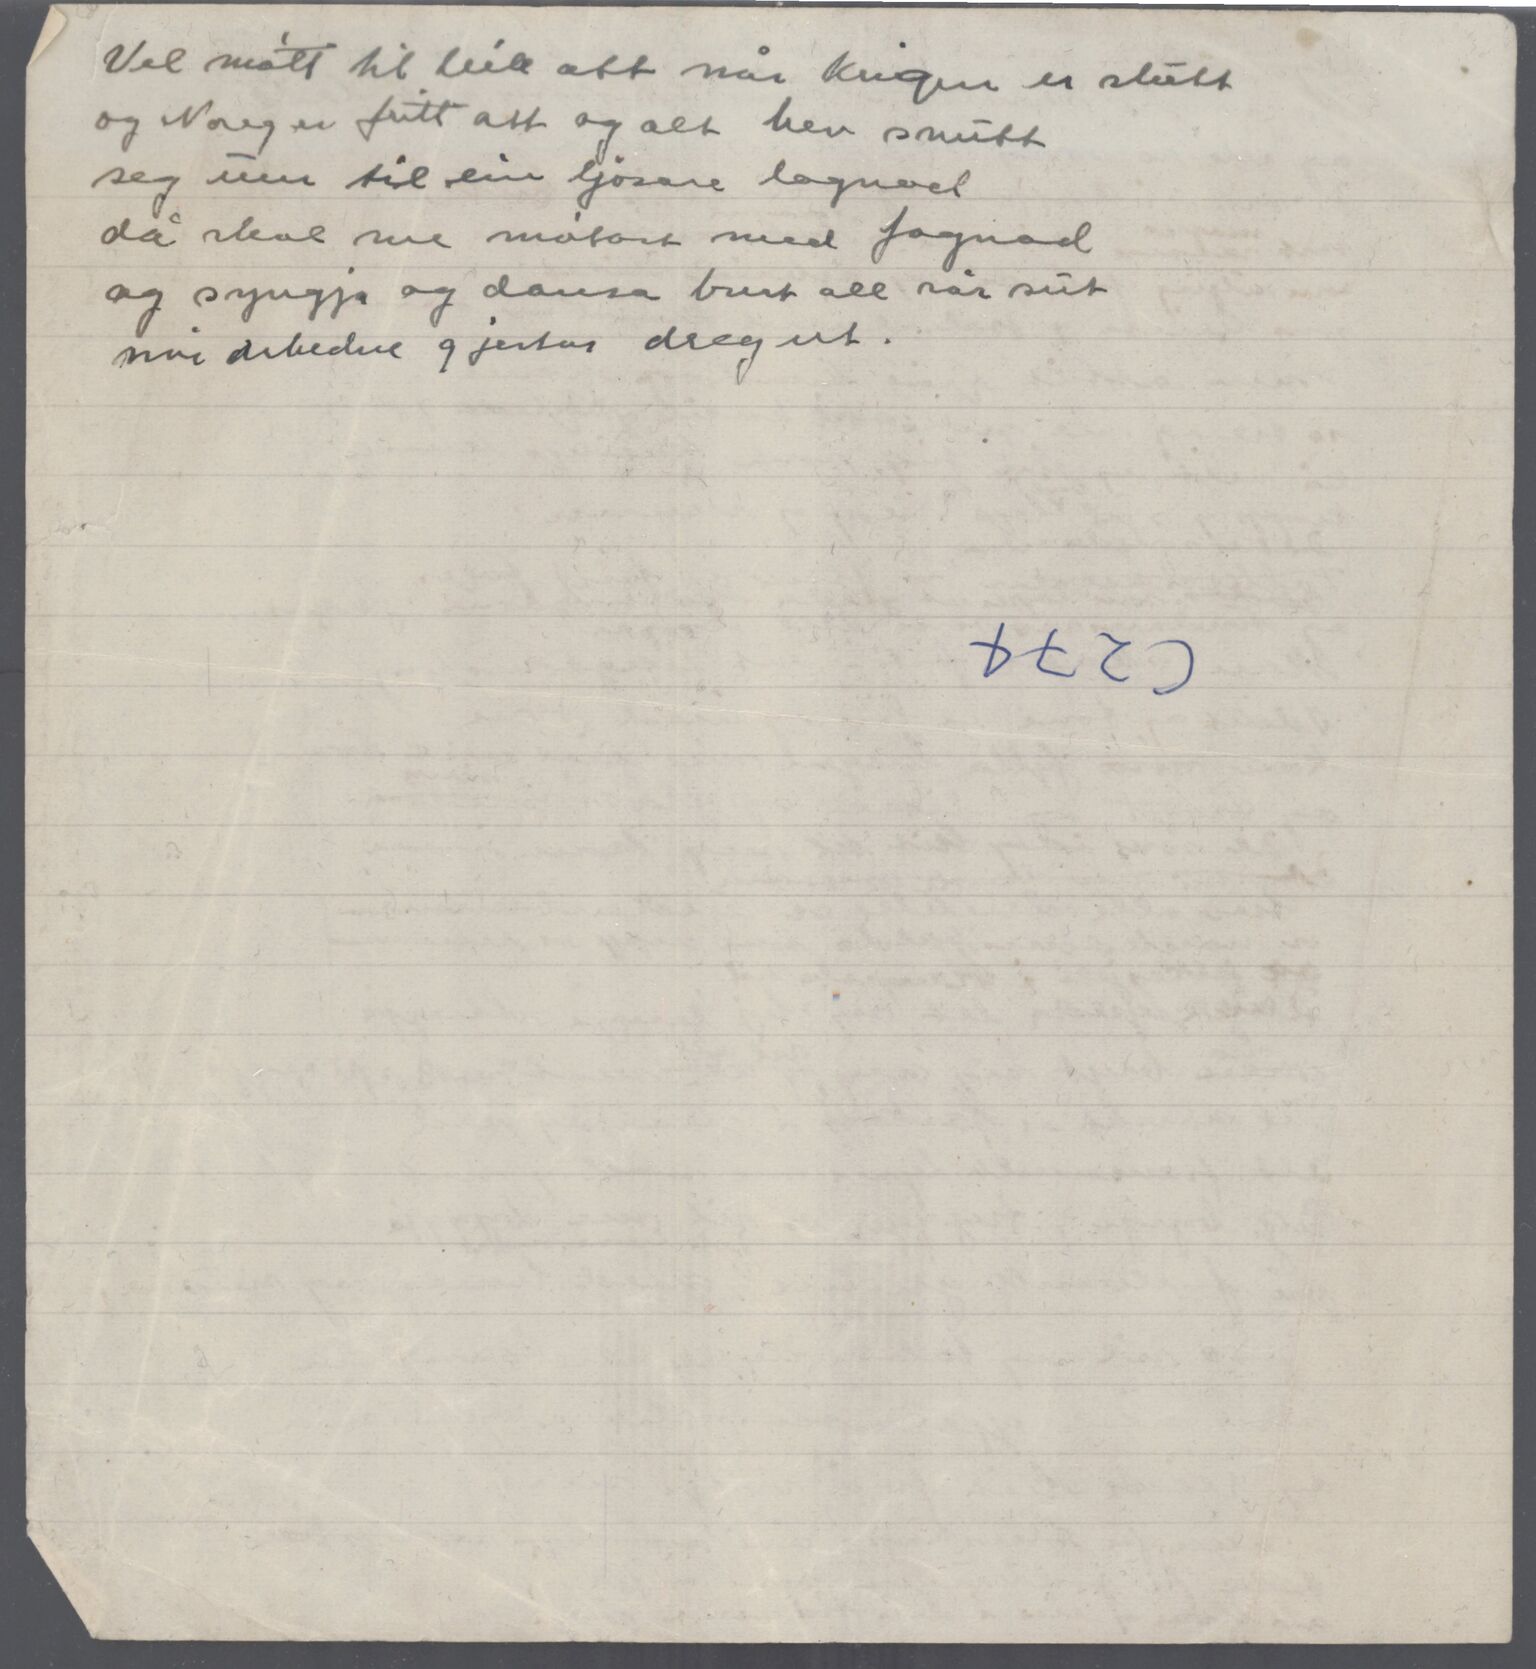 Vel møtt til leik att når krigen er slutt
og Noreg er fritt att og alt hev snutt
seg um til ein ljósare lagnad
då skal me møtast med fagnad
og syngja og dansa burt all sår sut
når dei bedne gjestar dreg ut.
C274